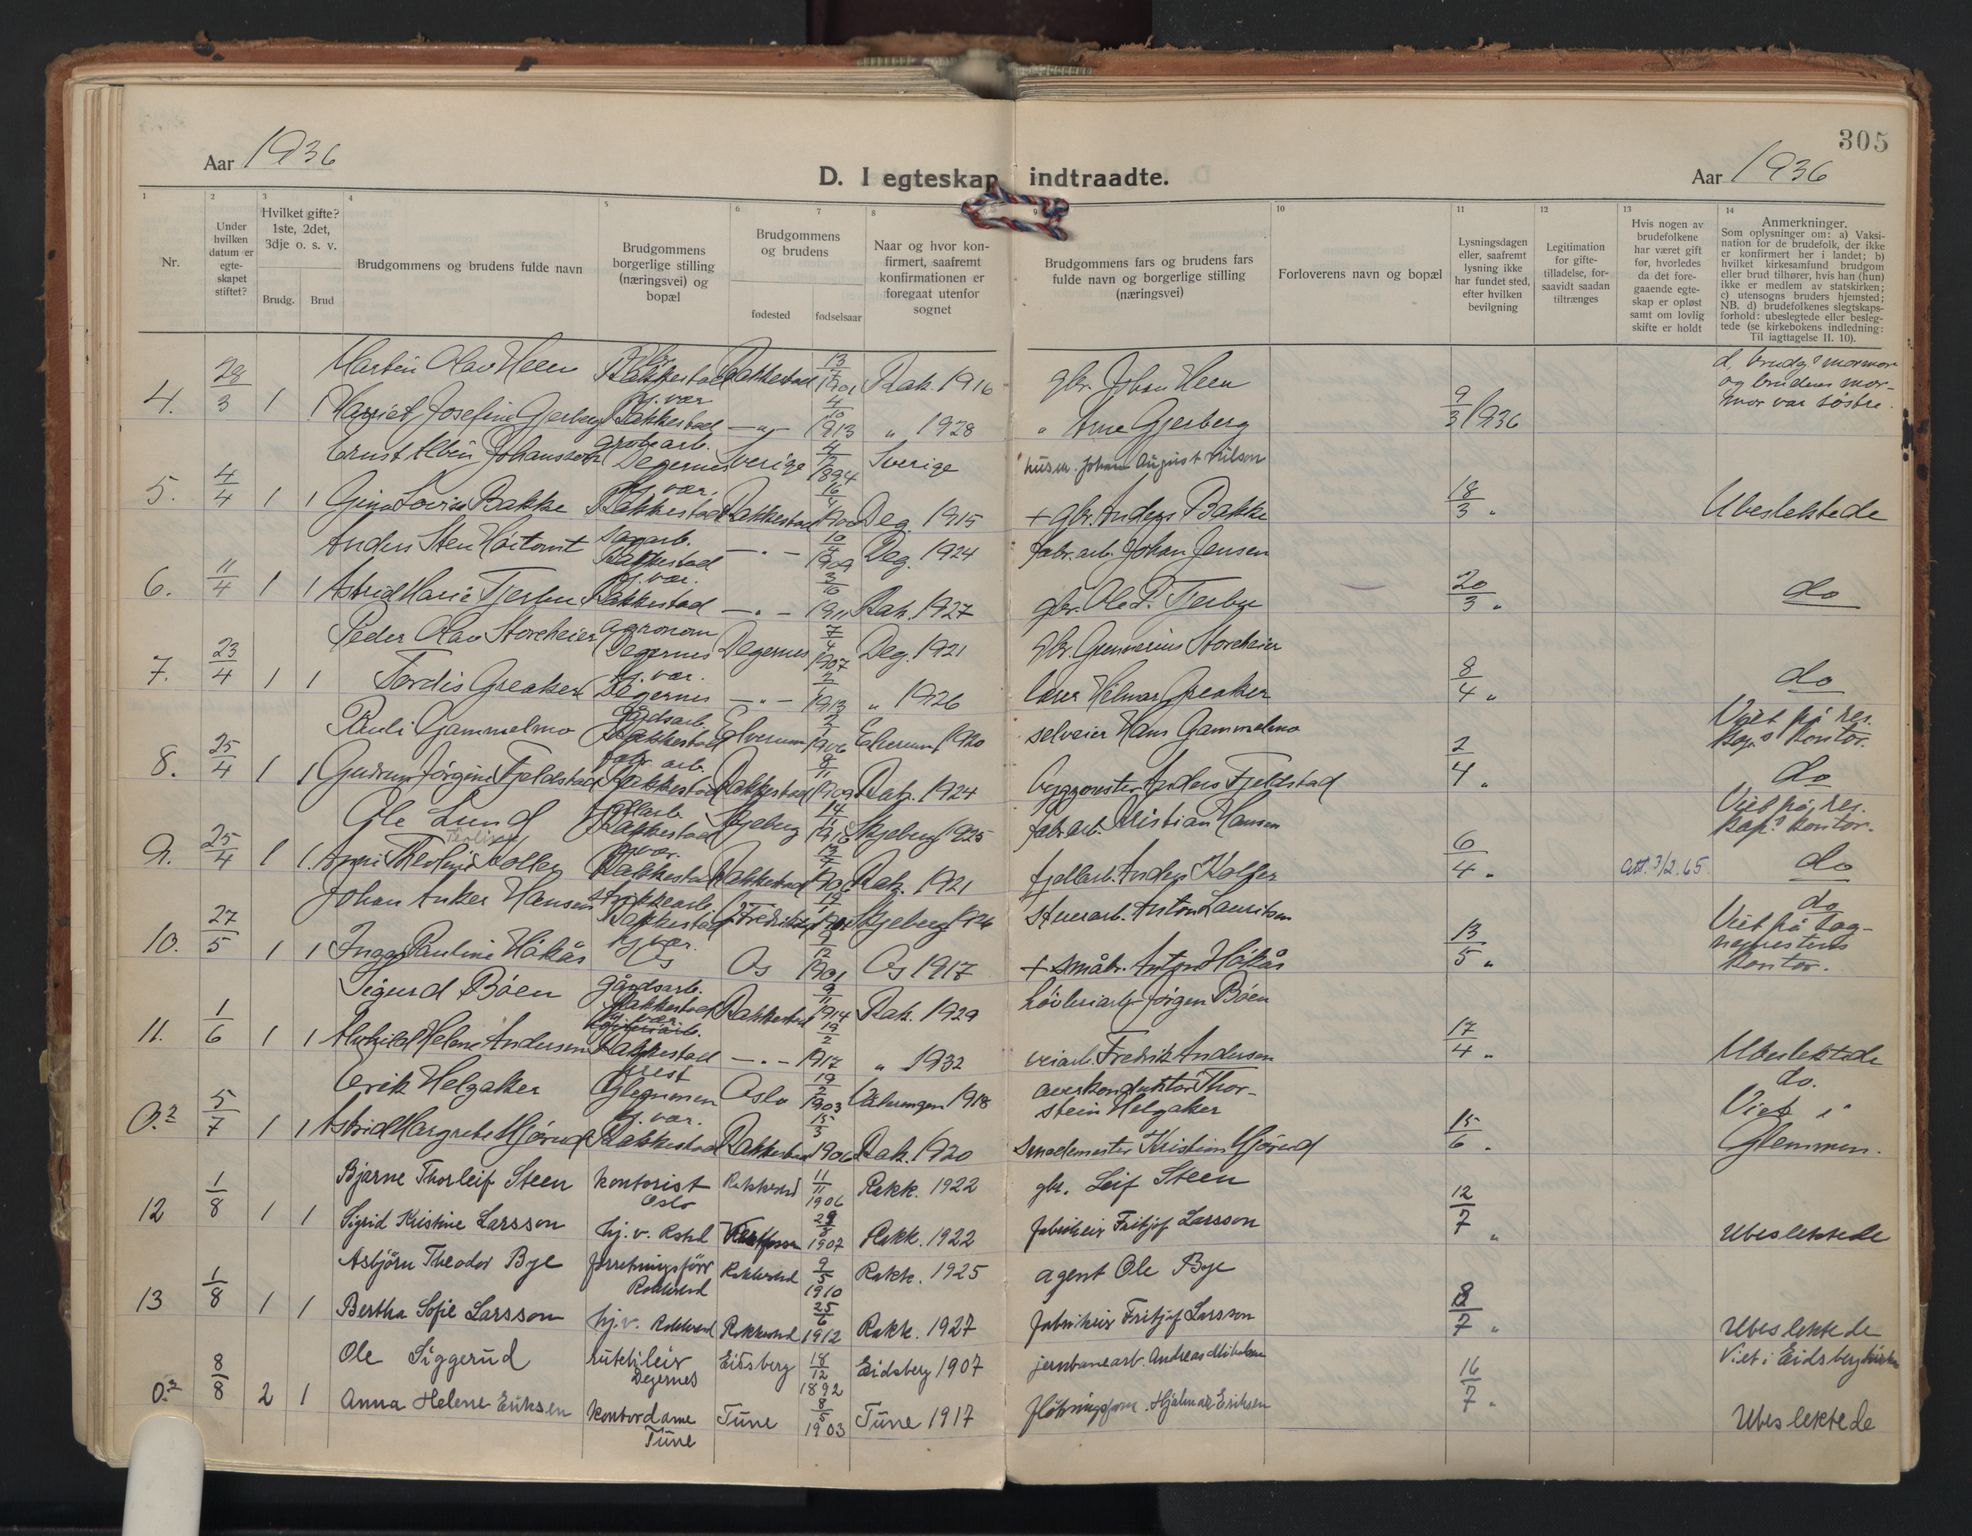 305
Aar 1936
D. I egteskap indtraadte.
Aar 1936
1 2 3 4 5 6 7 8 9 10 11 12 13 14
Nr.
Under hvilken datum er egteskapet stiftet?
Hvilket gifte? 1ste, 2det, 3dje o. s. v.
Brudg. Brud
Brudgommens og brudens fulde navn
Brudgommens borgerlige stilling (næringsvei) og bopæl
Brudgommens og brudens
fødested fødselsaar
Naar og hvor konfirmert, saafremt konfirmationen er foregaat utenfor sognet
Brudgommens fars og brudens fars fulde navn og borgerlige stilling (næringsvei)
Forloverens navn og bopæl
Lysningsdagen eller, saafremt lysning ikke har fundet sted, efter hvilken bevilgning
Legitimation for giftetilladelse, forsaavidt saadan tiltrænges
Hvis nogen av brudefolkene har været gift før, hvorledes da det foregaaende egteskap er opløst samt om lovlig skifte er holdt
Anmerkninger.
Som oplysninger om: a) Vaksination for de brudefolk, der ikke er konfirmert her i landet; b) hvilket kirkesamfund brudgom eller brud tilhører, hvis han (hun) ikke er medlem av statskirken; c) utensogns bruders hjemsted; NB. d) brudefolkenes slegtskapsforhold: ubeslegtede eller beslegtede (se kirkebokens indledning: Til iagttagelse II. 10).
4. 28/3 1 1 Martin Olav Heen Rakkestad Rakkestad 1901 Rak. 1916 gbr. Johan Heen 9/3 1936 d, brudg.s mormor og brudens mormor var søstre.
Harriet Josefine Gjerberg hj. vær Rakkestad -"- 4/10 1913 " 1928 " Arne Gjerberg
5. 4/4 1 1 Ernst Albin Johansson grovarb. Degernes Sverige 1894 Sverige husm. Johan August Nilson 18/3 " Ubeslektede
Gina Lovise Bakke hj. vær. Rakkestad Rakkestad 1900 Deg. 1915 + gbr. Anders Bakke
6. 11/4 1 1 Anders Sten Høitomt sagarb. Rakkestad -"- 1909 Deg. 1924 fabr. arb. Johan Jensen 20/3 " do
Astrid Marie Tjerbu hj. vær. Rakkestad -"- 1911 Rak. 1927 gbr. Ole P. Tjerbu
7. 23/4 1 1 Peder Olav Storeheier agronom Degernes Degernes 7/4 1907 Deg. 1921 gbr. Gunnerius Storeheier 8/4 " do
Tordis Greaker hj. vær. Degernes -"- 1913 " 1926 lærer Hilmar Greaker
8. 25/4 1 1 Pauli Gammelmo gårdsarb. Rakkestad Elverum 1906 Elverum 1920 selveier Hans Gammelmo 2/4 " Viet på res. kap.s kontor. do
Gudrun Jørgine Fjeldstad fabr. arb. Rakkestad Rakkestad 8/11 1909 Rak. 1924 byggmester Anders Fjeldstad
9. 25/4 1 1 Ole Lund Rakkestad Skjeberg 1910 Skjeberg 1925 fabr arb. Kristian Hansen 6/4 " Att. 3/2.65. Viet på res. kap.s kontor. do
Anni Theoline Koller hj. vær. Rakkestad Rakkestad 1906 Rak. 1921 fjellarb. Anders Koller
10. 27/5 1 1 Johan Anker Hansen Rakkestad Skjeberg 1926 Anton Lauritsen 13/5 " do Viet på kontor.
Inga Pauline Håkås hj. vær. Os Os 1901 Os 1917 + småbr. Anton Håkås
11. 1/6 1 1 Sigurd Böen gårdsarb. Rakkestad Rakkestad 9/11 1914 Rak. 1929 høvleriarb. Jørgen Böen 17/4 " Ubeslektede
Helene Andersen Rakkestad -"- 19/2 1917 " 1932 veiarb. Fredrik Andersen
0.2 5/7 1 1 Eirik Helgaker prest Glemmen Oslo 19/2 1903 1918 overkonduktør Thorstein Helgaker 15/6 " do. Viet i Glemmen.
Astrid Margrete Mjørud hj. vær. Rakkestad Rakkestad 15/3 1906 Rak. 1920 Kristian Mjørud
12 1/8 1 1 Bjarne Thorleif Steen kontorist Oslo Rakkestad 11/11 1906 Rakk. 1922 gbr. Leif Steen 12/7 " Ubeslektede
Sigrid Kristine Larsson hj. v. Rakkestad 29/8 1907 Rakk. 1922 fabrikeier Fritjof Larsson
13 1/8 1 1 Asbjörn Theodor Bye forretningsförer Rakkestad Rakkestad 9/5 1910 Rakk. 1925 agent Ole Bye 8/7 " Ubeslektede
Bertha Sofie Larsson hj. v. Rakkestad Rakkestad 25/6 1912 Rakk. 1927 fabrikeier Fritjof Larsson
0.3 8/8 2 1 Ole Siggerud rutebileier Degernes Eidsberg 18/12 1892 Eidsberg 1907 jernbanearb. Andreas Mikelsen 16/7 " Viet i Eidsberg kirke
Anna Helene Eriksen kontordame Tune Tune 8/5 1903 Tune 1917 fløtningsform. Hjalmar Eriksen Ubeslektede